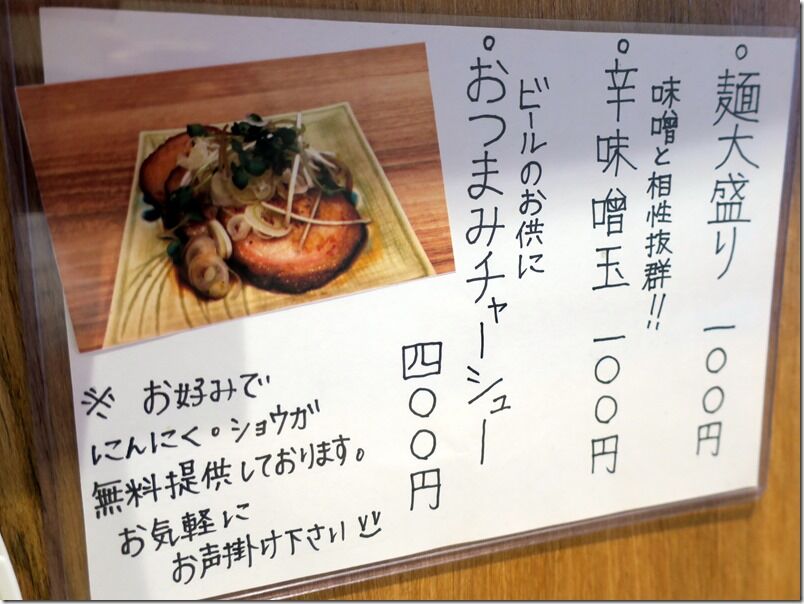 。麺大盛り 一〇〇円
味噌と相性抜群!!
。辛味噌玉 一〇〇円
ビールのお供に
。おつまみチャーシュー
四〇〇円
※ お好みで
にんにく。ショウガ
無料提供しております。
お気軽に
お声掛け下さい